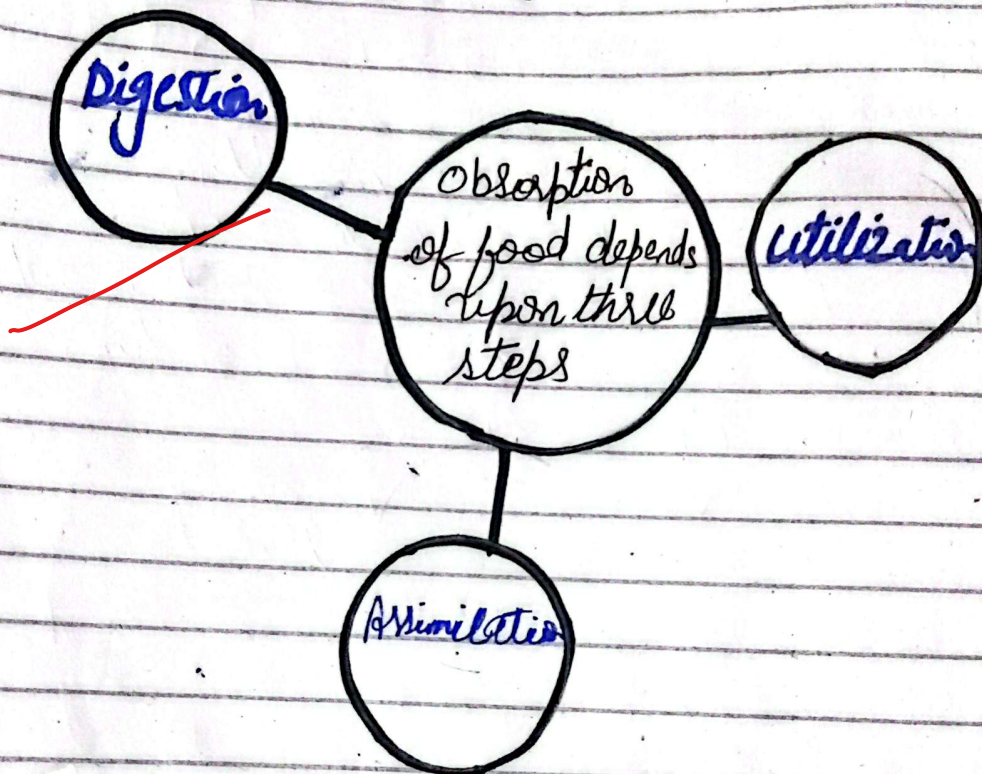 Digestion
Obsorption
of food depends
upon three
steps
utilization
Assimilation